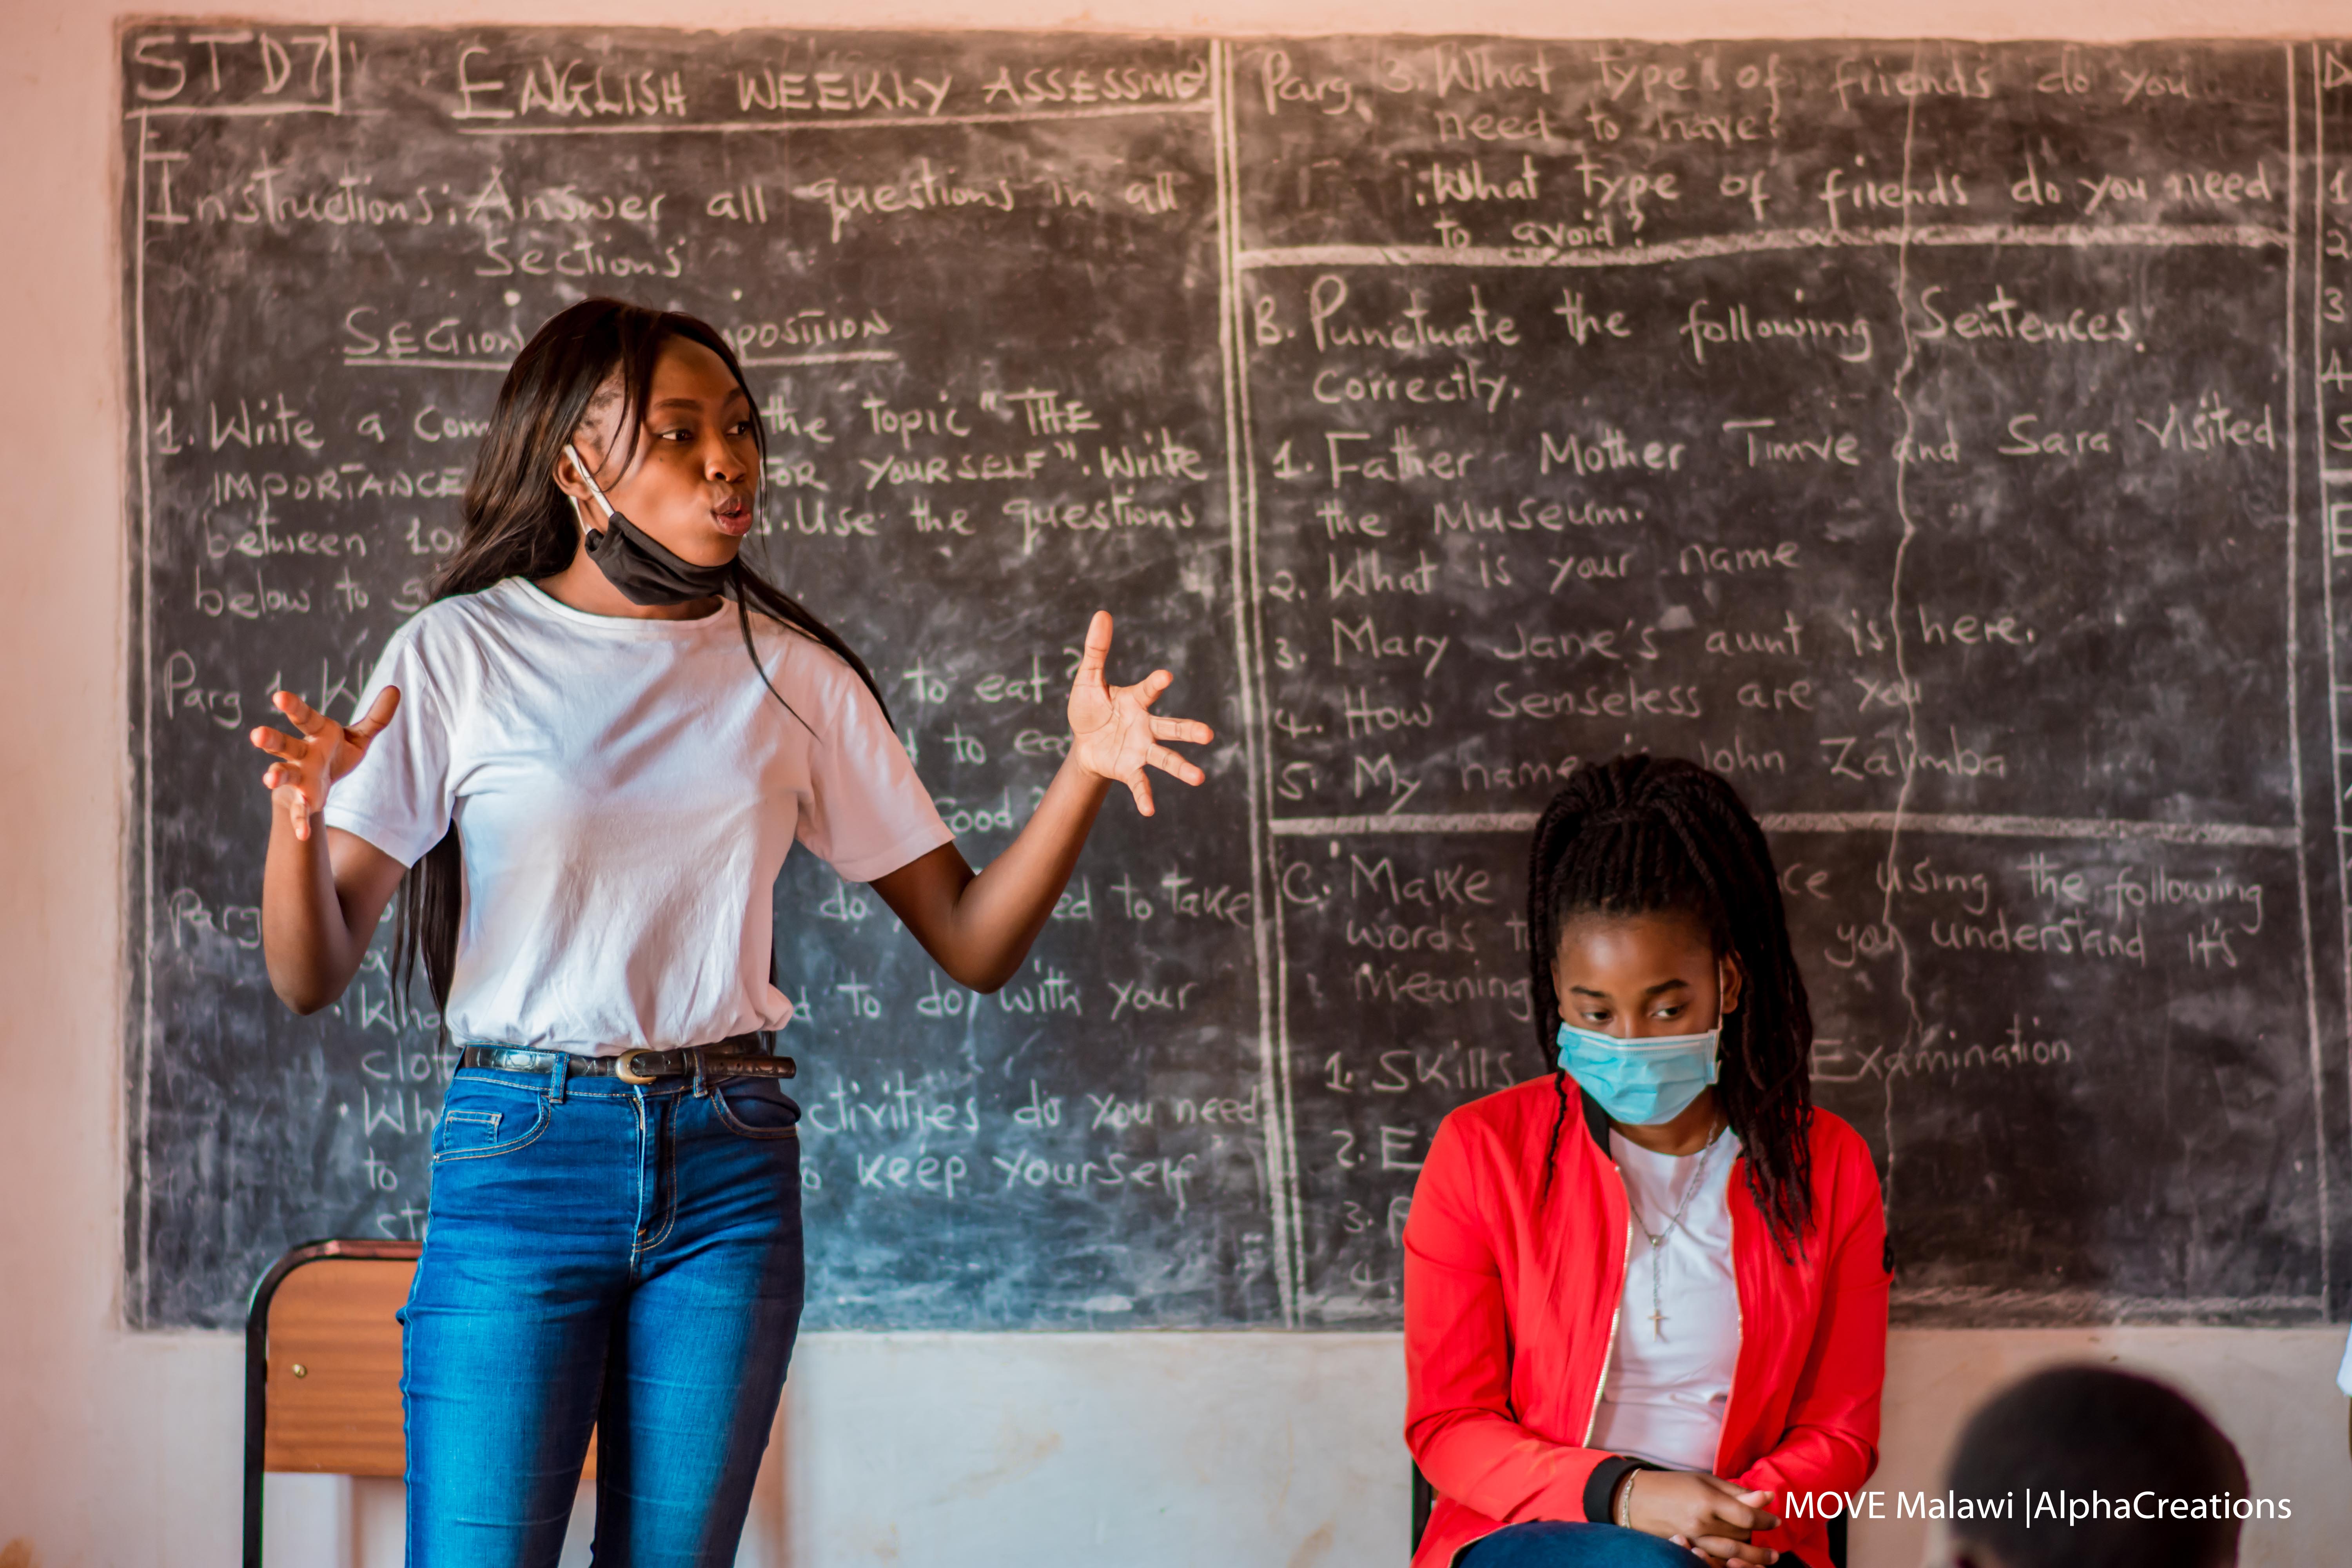 STD7
ENGLISH WEEKLY ASSESSME
Instructions: Answer all questions in all
Sections
SECTION POSITION
1. Write a Com the topic "THE
IMPORTANCE FOR YOURSELF". Write
between . Use the questions
below to
Parg 1. to eat?
to
Good?
Parg do ed to take
d to do with your
clot
Wh ctivities do you need
to keep yourself
Parg 3. What type's of friends do you
need to have?
What type of friends do you need
to avoid?
B. Punctuate the following Sentences.
Correctly.
1. Father Mother Timve and Sara Visited
the Museum.
2. What is your name
3. Mary Jane's aunt is here.
4. How Senseless are you
5. My name is John Zalimba
C. Make ce using the following
words you understand it's
Meaning
1. Skills Examination
2. E
3.
4.
MOVE Malawi |AlphaCreations